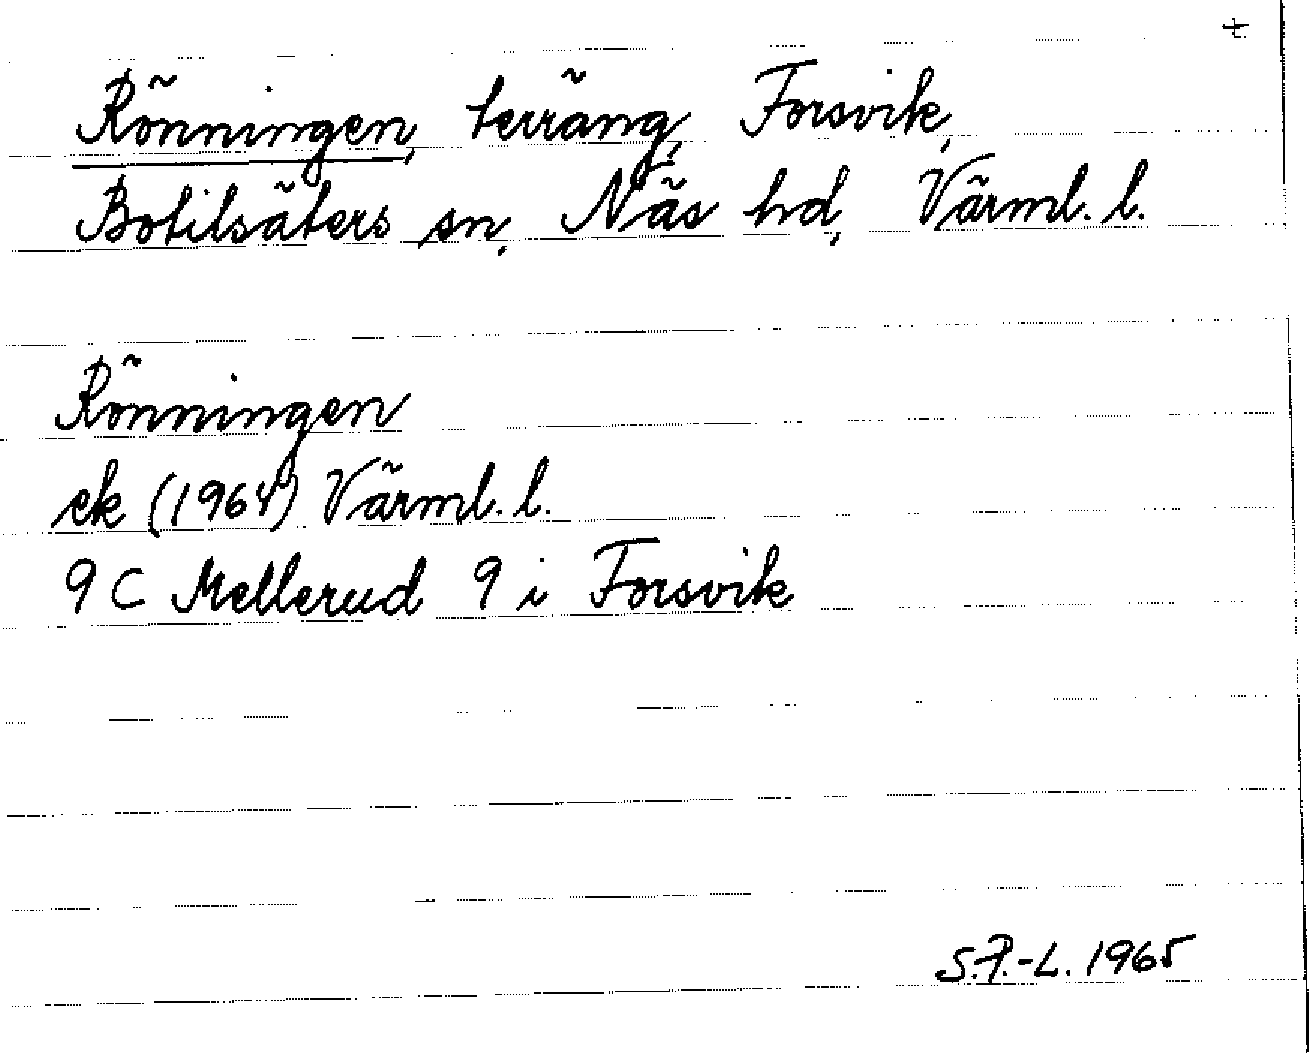 t.
Rönningen, terräng, Forsvik,
Botilsäters sn, Näs hd, Värml. l.
Rönningen
ek (1964) Värml. l.
9 C Mellerud 9 i Forsvik
S.P.-L. 1965